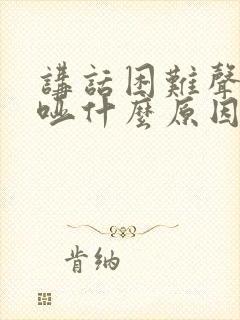 講話困難聲
啞什麼原因
肯納